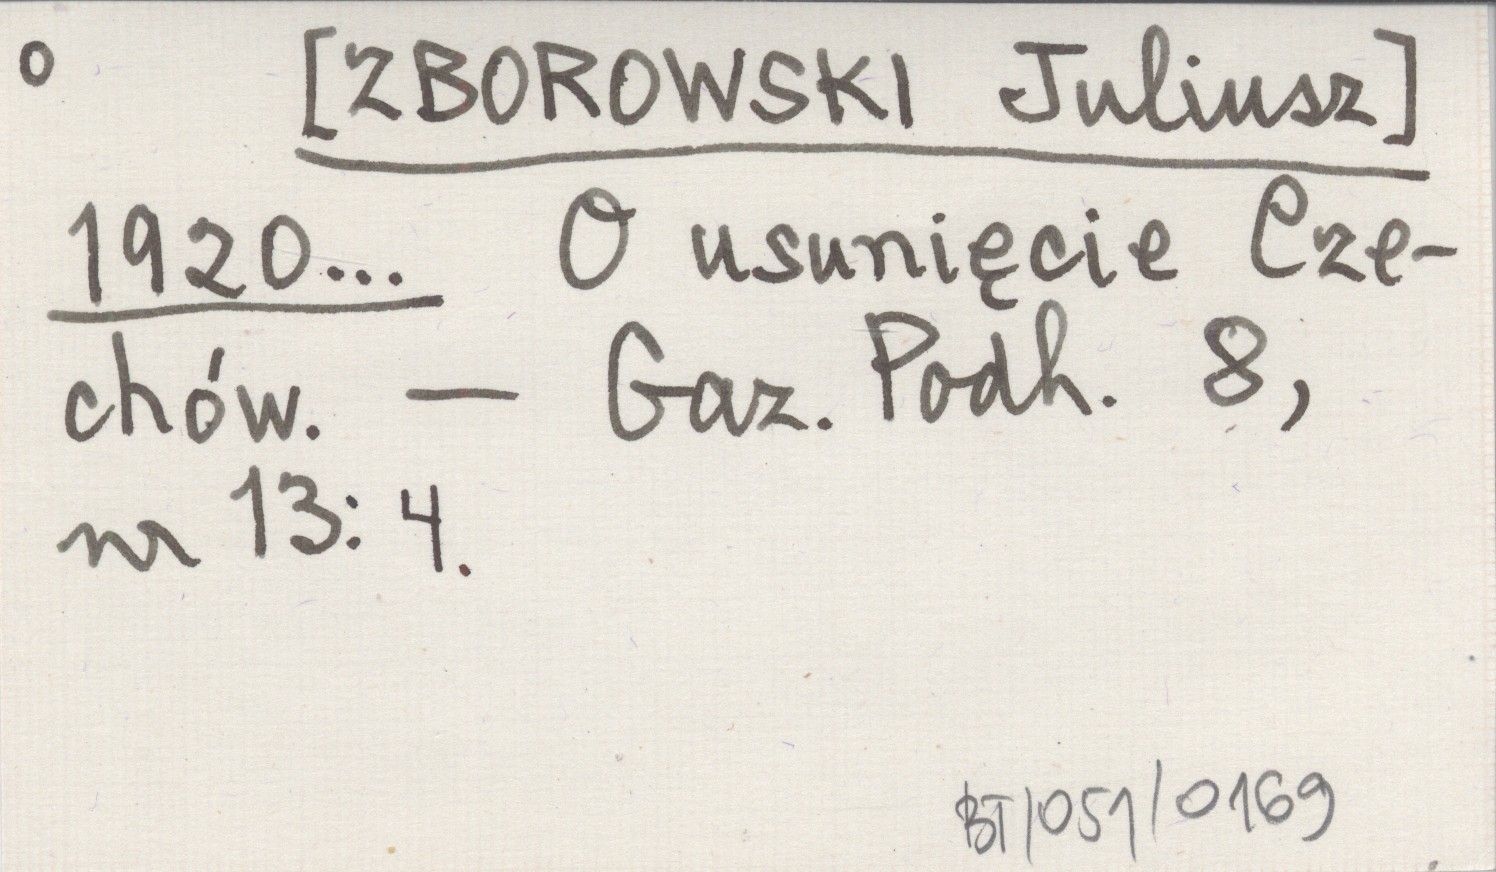 o [ZBOROWSKI Juliusz]
1920... O usunięcie Cze-
chów. — Gaz. Podh. 8,
nr 13: 4.
BT/051/0169